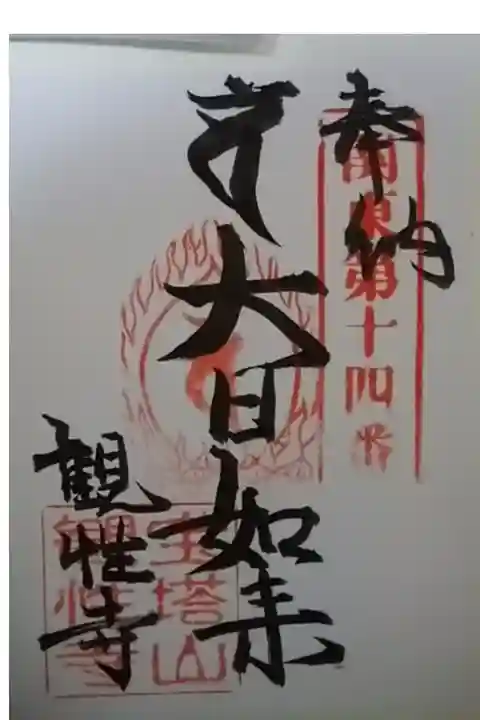 奉納
関東第十四番
大日如来
宝塔山
観性寺
観性寺